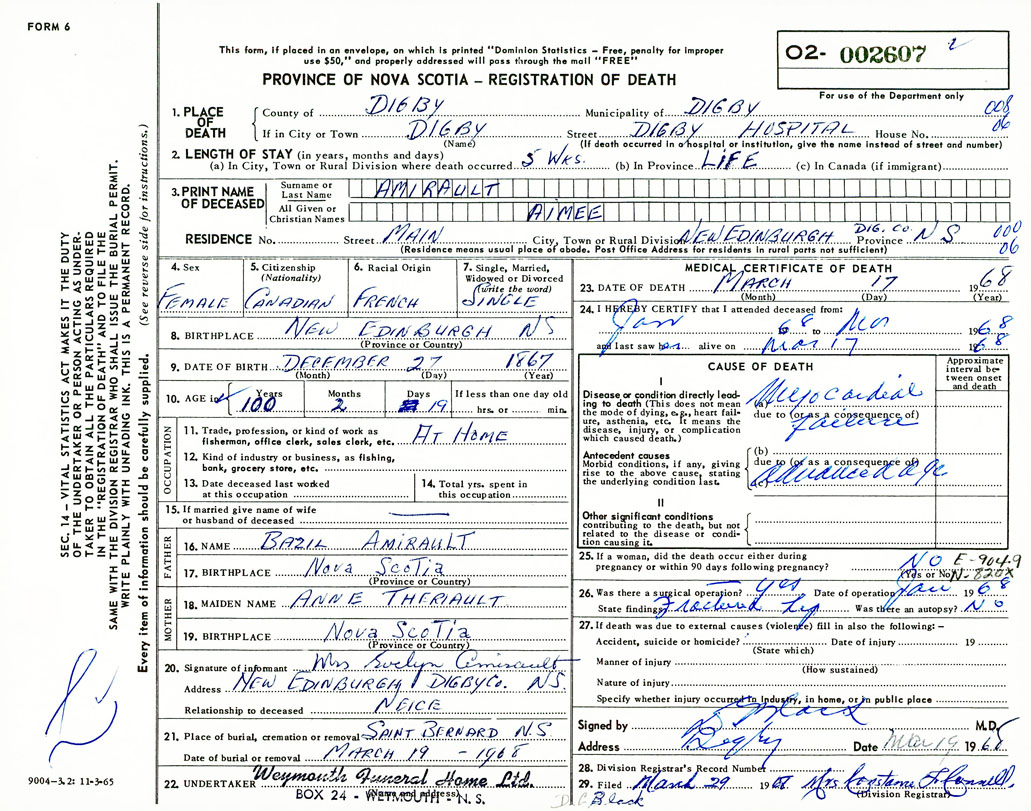 FORM 6
This form, if placed in an envelope, on which is printed "Dominion Statistics – Free, penalty for improper
use $50," and properly addressed will pass through the mail "FREE"
PROVINCE OF NOVA SCOTIA – REGISTRATION OF DEATH
O2- 002607
For use of the Department only
SEC. 14 – VITAL STATISTICS ACT MAKES IT THE DUTY
OF THE UNDERTAKER OR PERSON ACTING AS UNDER-
TAKER TO OBTAIN ALL THE PARTICULARS REQUIRED
IN THE "REGISTRATION OF DEATH" AND TO FILE THE
SAME WITH THE DIVISION REGISTRAR WHO SHALL ISSUE THE BURIAL PERMIT.
WRITE PLAINLY WITH UNFADING INK. THIS IS A PERMANENT RECORD.
Every item of information should be carefully supplied. (See reverse side for instructions.)
1. PLACE OF DEATH
County of DIGBY Municipality of DIGBY 008
If in City or Town DIGBY Street DIGBY HOSPITAL House No. 06
(Name) (If death occurred in a hospital or institution, give the name instead of street and number)
2. LENGTH OF STAY (in years, months and days)
(a) In City, Town or Rural Division where death occurred 5 WKS. (b) In Province LIFE (c) In Canada (if immigrant)
3. PRINT NAME OF DECEASED
Surname or Last Name AMIRAULT
All Given or Christian Names AIMEE
RESIDENCE No. Street MAIN City, Town or Rural Division NEW EDINBURGH DIG. CO. Province NS 000
(Residence means usual place of abode. Post Office Address for residents in rural parts not sufficient) 06
4. Sex FEMALE
5. Citizenship (Nationality) CANADIAN
6. Racial Origin FRENCH
7. Single, Married, Widowed or Divorced (write the word) SINGLE
8. BIRTHPLACE NEW EDINBURGH NS
(Province or Country)
9. DATE OF BIRTH DECEMBER 27 1867
(Month) (Day) (Year)
10. AGE is Years 100 Months 2 Days 19 If less than one day old hrs. or min.
OCCUPATION
11. Trade, profession, or kind of work as
fisherman, office clerk, sales clerk, etc. AT HOME
12. Kind of industry or business, as fishing,
bank, grocery store, etc.
13. Date deceased last worked at this occupation
14. Total yrs. spent in this occupation
15. If married give name of wife
or husband of deceased
FATHER
16. NAME BAZIL AMIRAULT
17. BIRTHPLACE NOVA SCOTIA
(Province or Country)
MOTHER
18. MAIDEN NAME ANNE THERIAULT
19. BIRTHPLACE NOVA SCOTIA
(Province or Country)
20. Signature of informant Mrs Evelyn Amirault
Address NEW EDINBURGH DIGBY CO. NS.
Relationship to deceased NEICE
21. Place of burial, cremation or removal SAINT BERNARD N.S.
Date of burial or removal MARCH 19 – 1968
22. UNDERTAKER Weymouth Funeral Home Ltd.
(Name and address)
BOX 24 - WEYMOUTH - N. S.
9004–3.2: 11-3-65
MEDICAL CERTIFICATE OF DEATH
23. DATE OF DEATH MARCH 17 1968
(Month) (Day) (Year)
24. I HEREBY CERTIFY that I attended deceased from:
Jan 68 to Mar 1968
and last saw her alive on Mar 17 1968
CAUSE OF DEATH
Approximate interval between onset and death
I
Disease or condition directly lead-
ing to death (This does not mean
the mode of dying, e.g., heart fail-
ure, asthenia, etc. It means the
disease, injury, or complication
which caused death.)
(a) Myocardial
due to (or as a consequence of)
failure
Antecedent causes
Morbid conditions, if any, giving
rise to the above cause, stating
the underlying condition last.
(b)
due to (or as a consequence of)
(c) advanced age
II
Other significant conditions
contributing to the death, but not
related to the disease or condi-
tion causing it.
25. If a woman, did the death occur either during
pregnancy or within 90 days following pregnancy? NO E-904-9
(Yes or No) N-820X
26. Was there a surgical operation? Yes Date of operation Jan 1968
State findings Fractured hip Was there an autopsy? NO
27. If death was due to external causes (violence) fill in also the following: –
Accident, suicide or homicide? Date of injury 19
(State which)
Manner of injury
(How sustained)
Nature of injury
Specify whether injury occurred in Industry, in home, or in public place
Signed by Black M.D.
Address Digby Date Mar 19 1968
28. Division Registrar's Record Number
29. Filed March 29 1968 Mrs
(Division Registrar)
Black